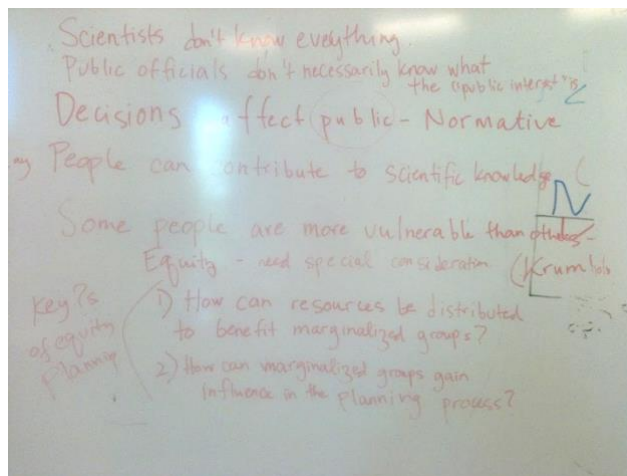 Scientists don't know eveything.
Public officials don't necessarily know what
the "public interest" is
Decisions affect public - Normative
People can contribute to scientific knowledge (
N
Some people are more vulnerable than others -
Equity - need special consideration (Krumholz
key ?s
of equity
planning
1) How can resources be distributed
to benefit marginalized groups?
2) How can marginalized groups gain
influence in the planning process?